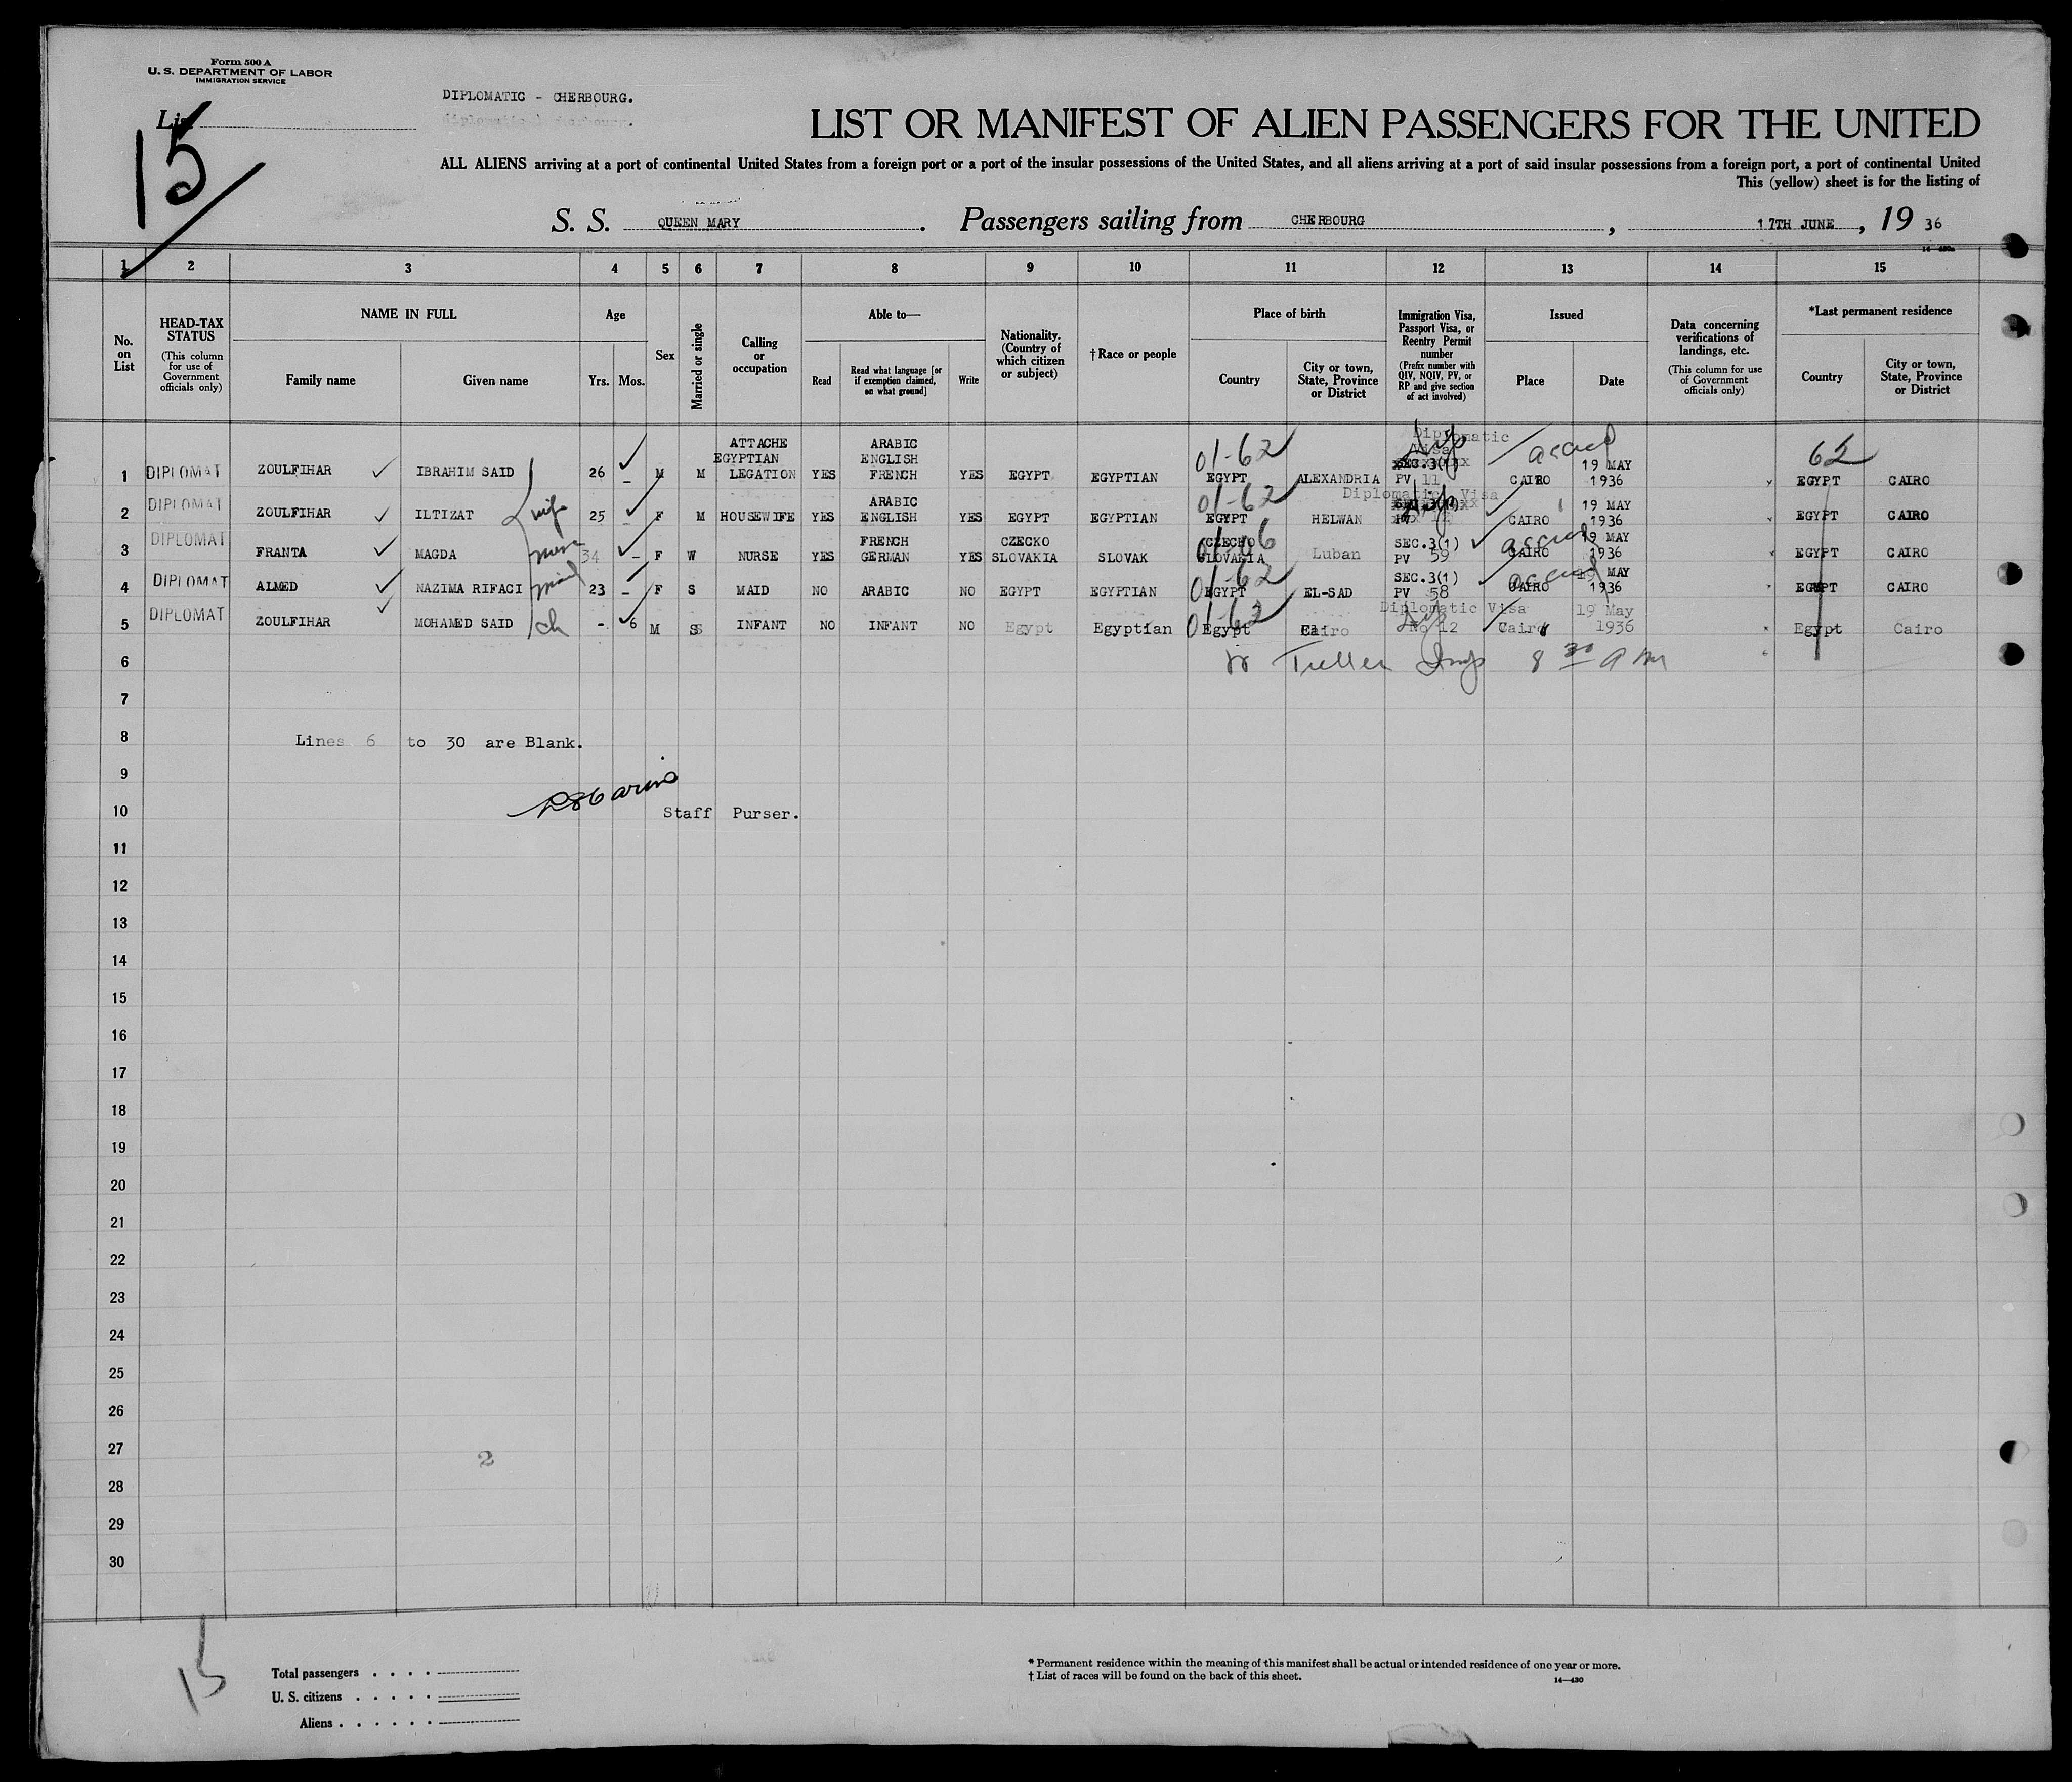 Form 500 A
U. S. DEPARTMENT OF LABOR
IMMIGRATION SERVICE
List
15
DIPLOMATIC - CHERBOURG.
LIST OR MANIFEST OF ALIEN PASSENGERS FOR THE UNITED
ALL ALIENS arriving at a port of continental United States from a foreign port or a port of the insular possessions of the United States, and all aliens arriving at a port of said insular possessions from a foreign port, a port of continental United
This (yellow) sheet is for the listing of
S. S. QUEEN MARY. Passengers sailing from CHERBOURG, 17TH JUNE, 19 36
1 2 3 4 5 6 7 8 9 10 11 12 13 14 15
No. on List
HEAD-TAX STATUS
(This column for use of Government officials only)
NAME IN FULL
Family name
Given name
Age
Yrs. Mos.
Sex
Married or single
Calling or occupation
Able to—
Read
Read what language [or if exemption claimed, on what ground]
Write
Nationality. (Country of which citizen or subject)
†Race or people
Place of birth
Country
City or town, State, Province or District
Immigration Visa, Passport Visa, or Reentry Permit number
(Prefix number with QIV, NQIV, PV, or RP and give section of act involved)
Issued
Place
Date
Data concerning verifications of landings, etc.
(This column for use of Government officials only)
*Last permanent residence
Country
City or town, State, Province or District
1 DIPLOMAT ZOULFIHAR IBRAHIM SAID 26 - M M ATTACHE EGYPTIAN LEGATION YES ARABIC ENGLISH FRENCH YES EGYPT EGYPTIAN 01-62 EGYPT ALEXANDRIA Diplomatic Visa SEC.3(1) PV 11 CAIRO 19 MAY 1936 62 EGYPT CAIRO
2 DIPLOMAT ZOULFIHAR ILTIZAT wife 25 F M HOUSEWIFE YES ARABIC ENGLISH YES EGYPT EGYPTIAN 01-62 EGYPT HELWAN Diplomatic Visa CAIRO 19 MAY 1936 EGYPT CAIRO
3 DIPLOMAT FRANTA MAGDA nurse 34 - F W NURSE YES FRENCH GERMAN YES CZECKO SLOVAKIA SLOVAK CZECHO SLOVAKIA Luban SEC.3(1) PV 59 CAIRO 19 MAY 1936 EGYPT CAIRO
4 DIPLOMAT ALMED NAZIMA RIFACI maid 23 - F S MAID NO ARABIC NO EGYPT EGYPTIAN 01-62 EGYPT EL-SAD SEC.3(1) PV 58 CAIRO 19 MAY 1936 EGYPT CAIRO
5 DIPLOMAT ZOULFIHAR MOHAMED SAID ch - 6 M S INFANT NO INFANT NO Egypt Egyptian 01-62 Egypt Cairo Diplomatic Visa No 12 Cairo 19 May 1936 Egypt Cairo
6 8 30 AM
7
8 Lines 6 to 30 are Blank.
9
10 Staff Purser.
11
12
13
14
15
16
17
18
19
20
21
22
23
24
25
26
27
2
28
29
30
15
Total passengers
U. S. citizens
Aliens
* Permanent residence within the meaning of this manifest shall be actual or intended residence of one year or more.
† List of races will be found on the back of this sheet.
14—430